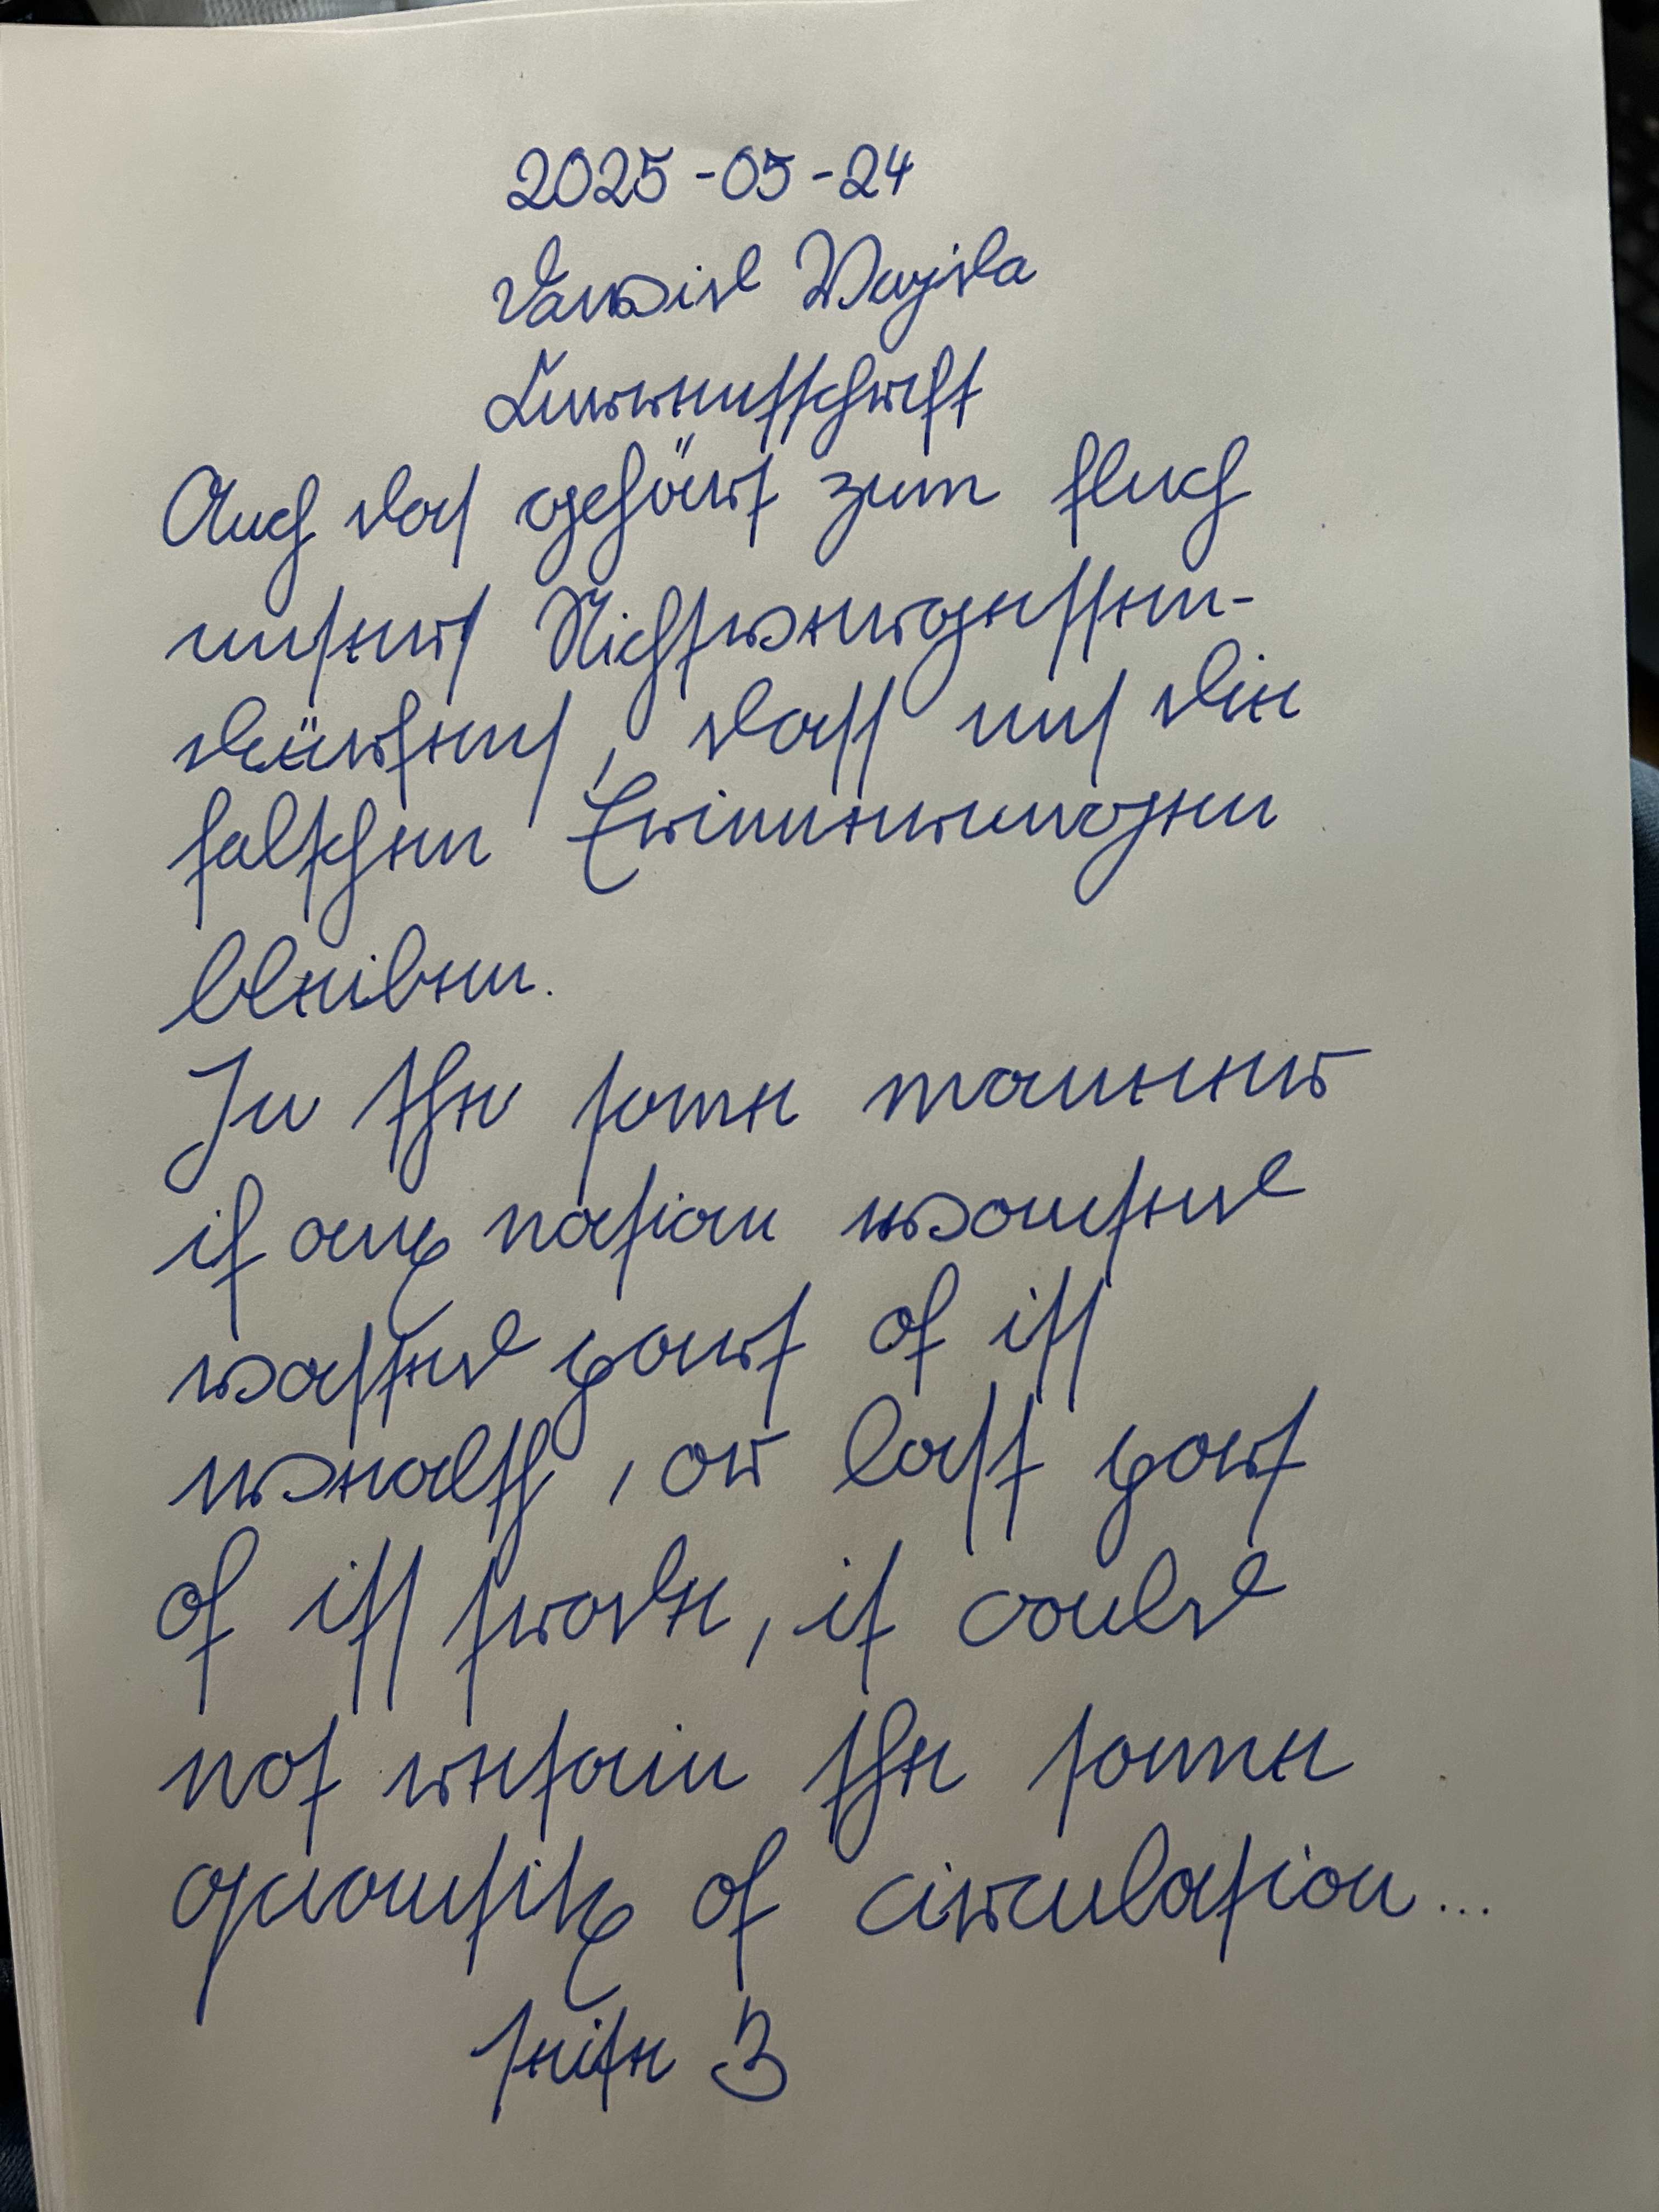 2025-05-24
Dawid Wajda
Kurrentschrift
Auch das gehört zum Fluch
unsers Nichtvergessen-
dürfens, dass uns die
falschen Erinnerungen
bleiben.
In the same manner
if any nation wanted
wasted part of its
wealth, or lost part
of its trade, it could
not retain the same
quantity of circulation...
Seite 3